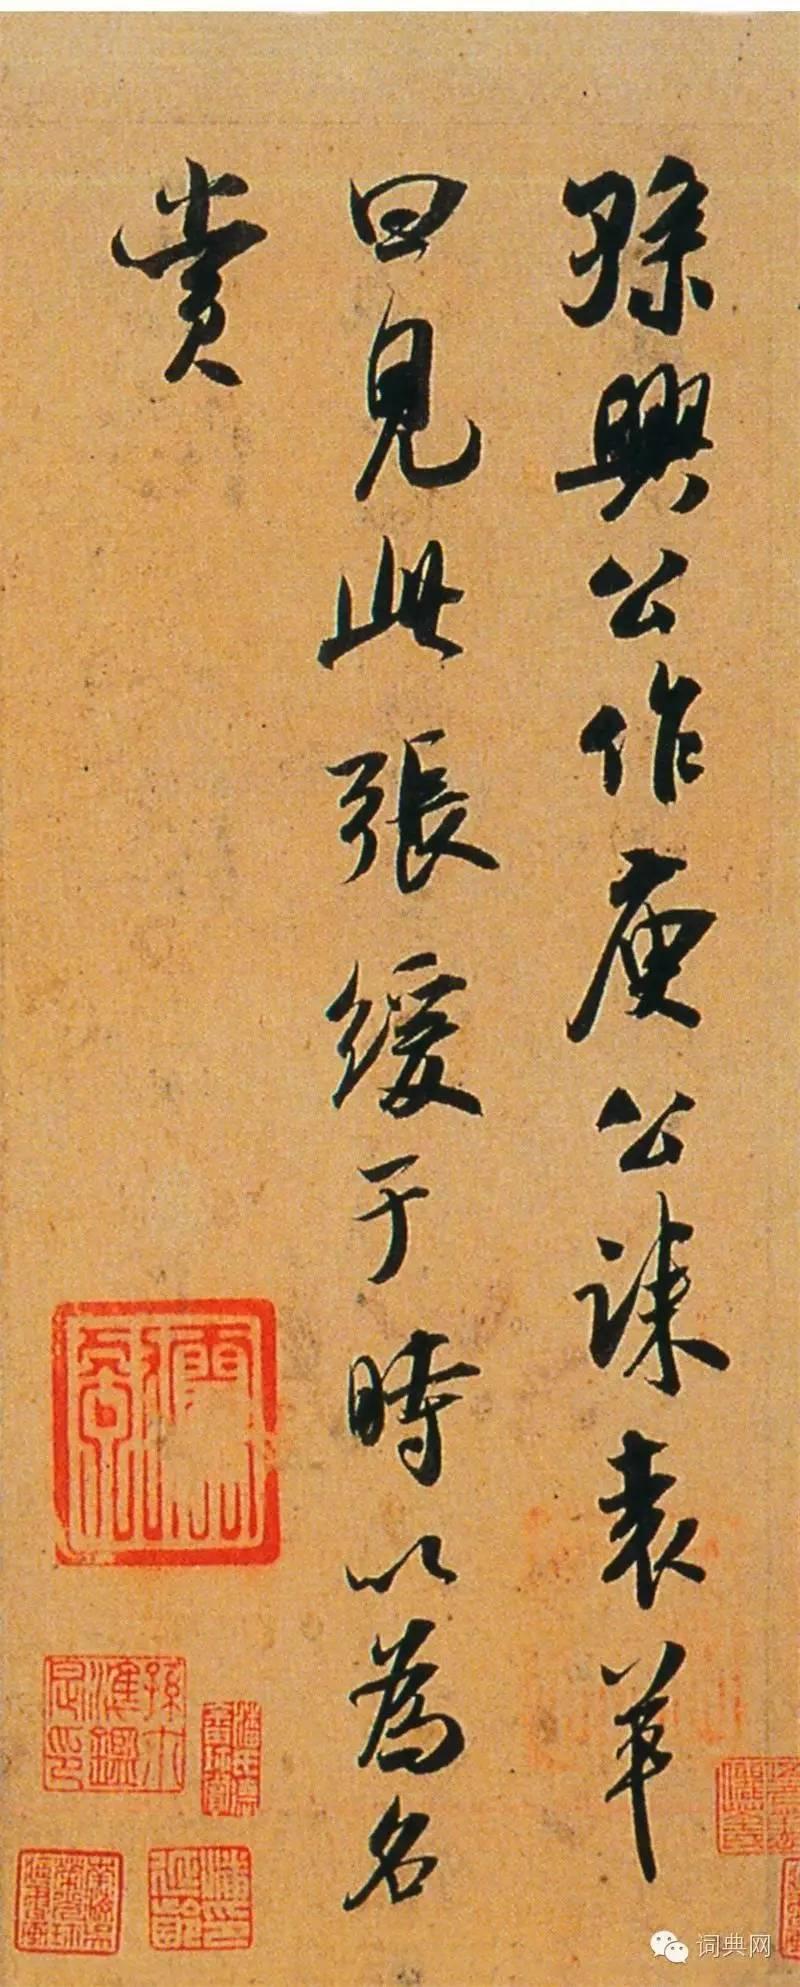 孫興公作庾公誄袁羊
曰見此張緩于時以為名
賞
词典网